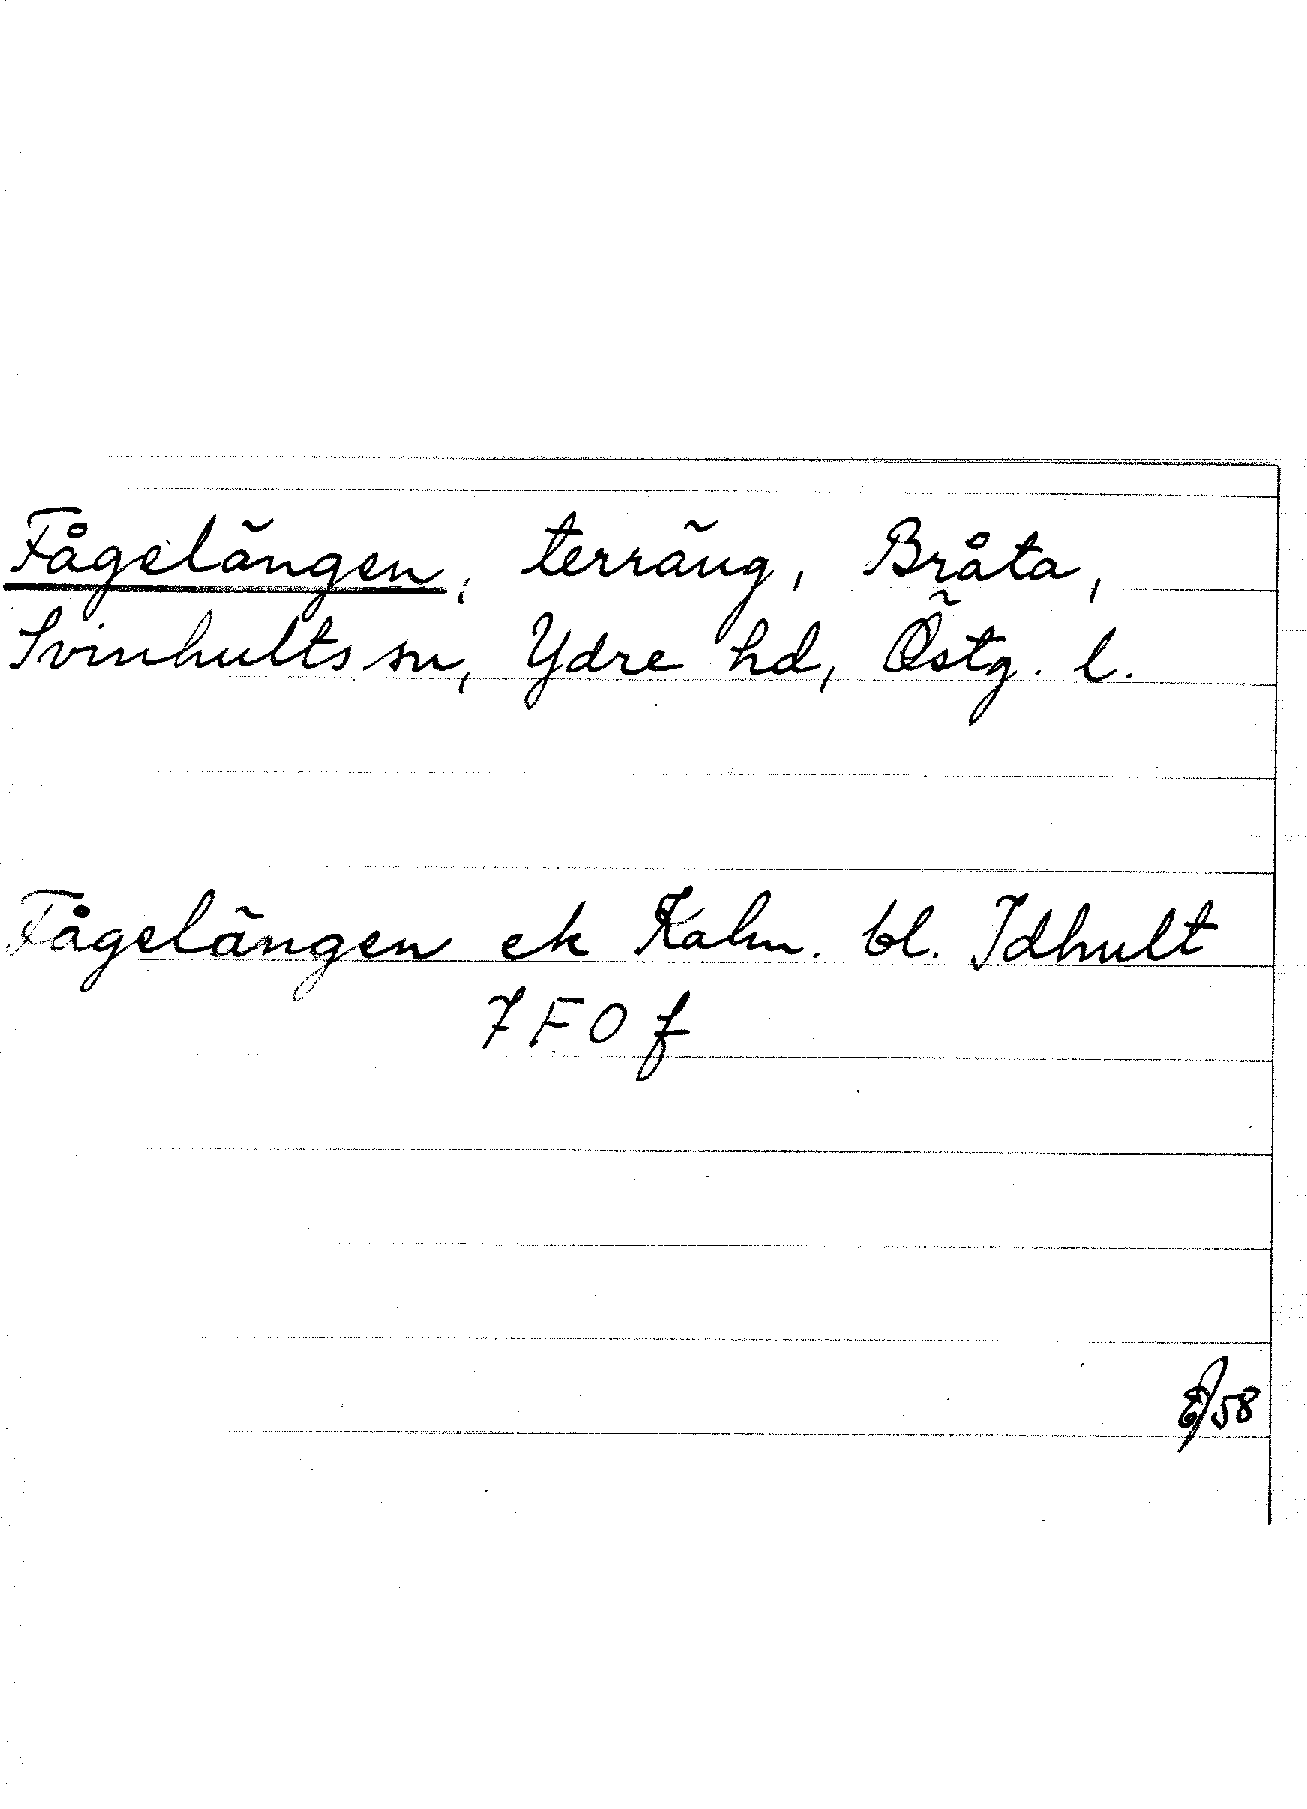 Fågelängen, terräng, Bråta,
Svinhults sn, Ydre hd, Östg. l.
Fågelängen ek Kalm. bl. Idhult
7 F O f
/58